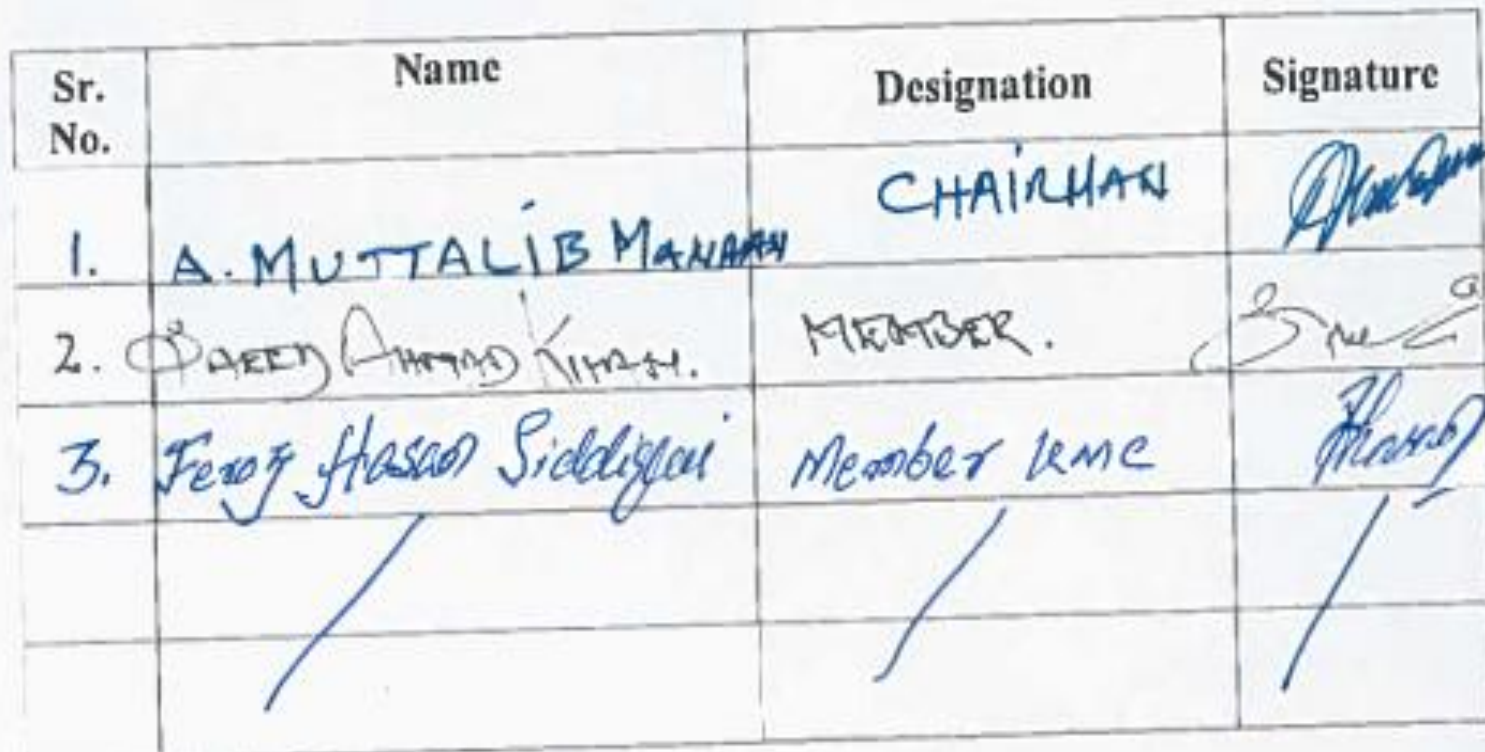 Sr. No. Name Designation Signature
1. A. MUTTALIB MANAAN CHAIRMAN
2. AHMAD KHAN. MEMBER.
3. Feroz Hasan Siddiqui Member KMC